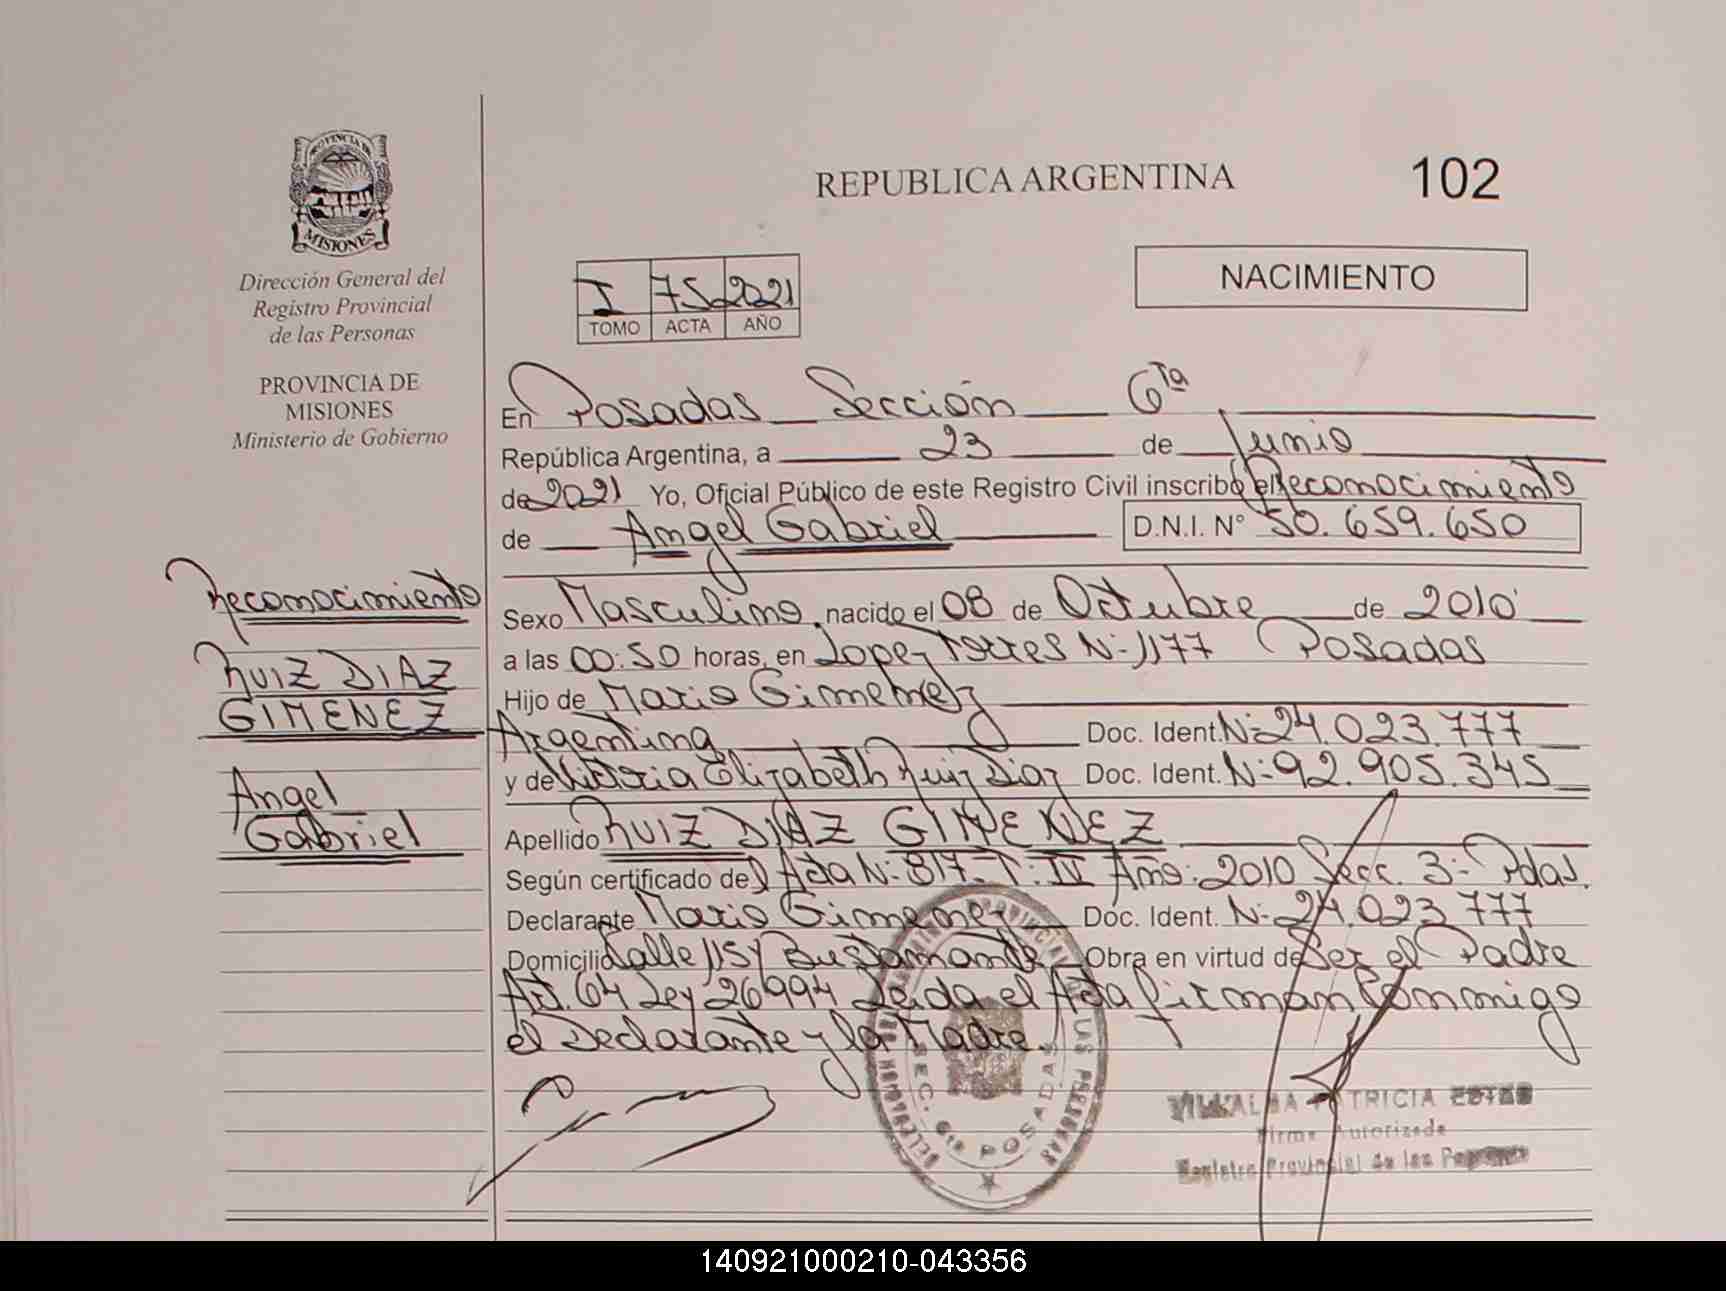 PROVINCIA DE
MISIONES
Dirección General del
Registro Provincial
de las Personas
PROVINCIA DE
MISIONES
Ministerio de Gobierno
REPUBLICA ARGENTINA
102
NACIMIENTO
I 75 2021
TOMO ACTA AÑO
En Posadas Sección 6ta
República Argentina, a 23 de Junio
de 2021 Yo, Oficial Público de este Registro Civil inscribo el Reconocimiento
de Angel Gabriel D.N.I. N° 50.659.650
Sexo Masculino nacido el 08 de Octubre de 2010
a las 00:50 horas, en Lopez Torres N- 1177 Posadas
Hijo de Mario Gimenez
Argentina Doc. Ident. N- 24.023.777
y de Victoria Elizabeth Ruiz Diaz Doc. Ident. N- 92.905.345
Apellido RUIZ DIAZ GIMENEZ
Según certificado del Acta N- 817- T: IV Año: 2010 Secc. 3- Pdas.
Declarante Mario Gimenez Doc. Ident. N- 24.023.777
Domicilio Calle 115 y Bustamante Obra en virtud de Ser el Padre
Art. 64 Ley 26994 Leida el Acta firman Conmigo
el Declarante y la Madre.
Reconocimiento
RUIZ DIAZ
GIMENEZ
Angel
Gabriel
SEC. 6ta POSADAS
VILLALBA PATRICIA
Firma Autorizada
Registro Provincial de las Personas
140921000210-043356